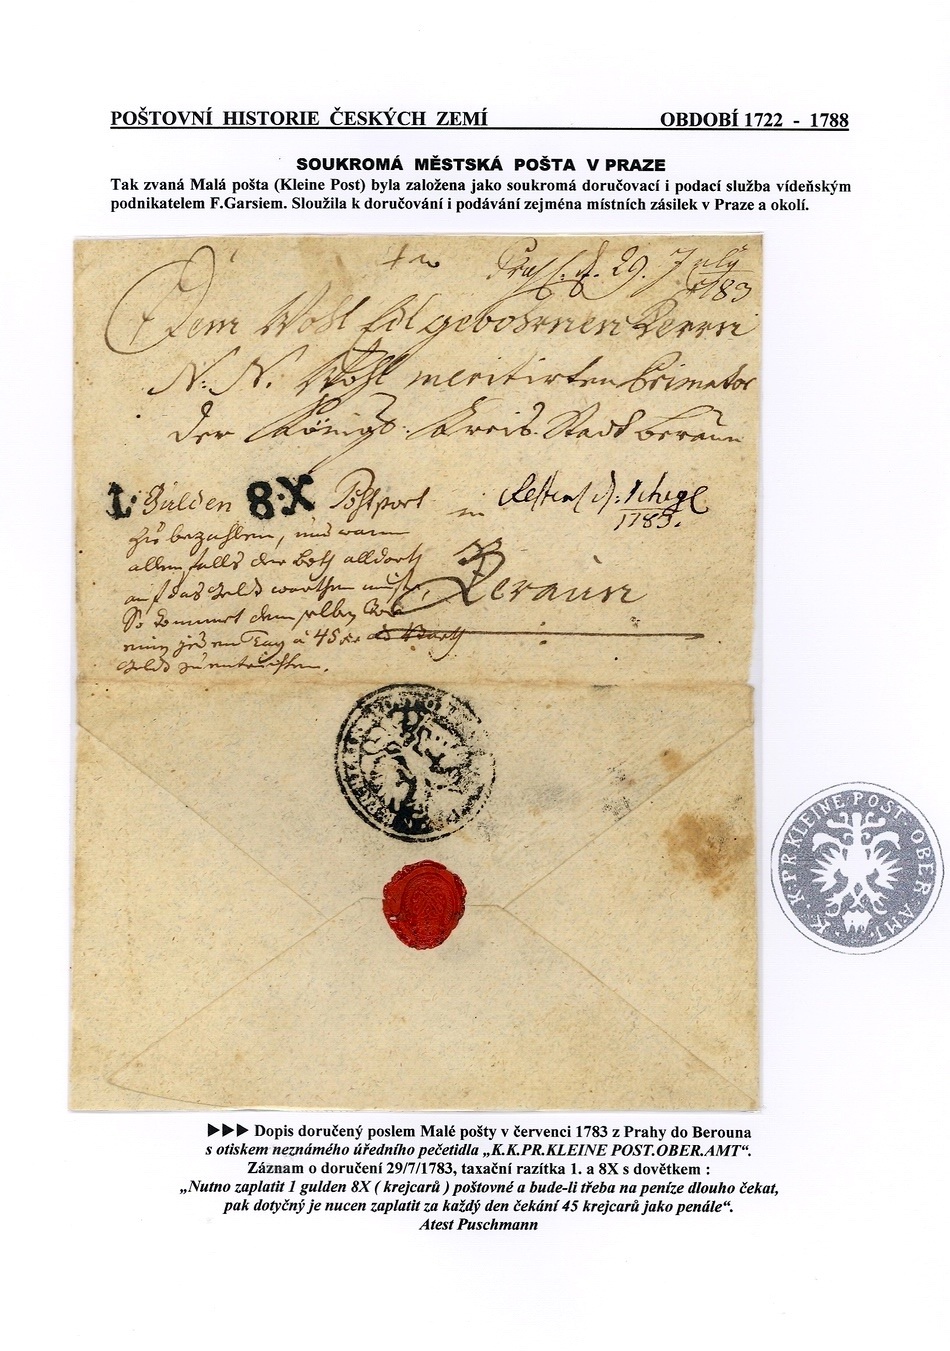 POŠTOVNÍ HISTORIE ČESKÝCH ZEMÍ OBDOBÍ 1722 - 1788
SOUKROMÁ MĚSTSKÁ POŠTA V PRAZE
Tak zvaná Malá pošta (Kleine Post) byla založena jako soukromá doručovací i podací služba vídeňským
podnikatelem F.Garsiem. Sloužila k doručování i podávání zejména místních zásilek v Praze a okolí.
Prag d. 29. July
1783
Dem Wohl Edl gebohrnen Herrn
N: N. Wohl meritirten Primator
der Königl. Kreis Stadt Beraun
1. Gulden 8.X Postport in
1783.
zu bezahlen, und wann
allenfalls der Both alldorth
auf das Geld warthen muß,
So kommet dem selben
Beraun
einen jeden Tag à 45 xr
Geld zu entrichten.
K.K.PR.KLEINE POST.OBER.AMT.
▶▶▶ Dopis doručený poslem Malé pošty v červenci 1783 z Prahy do Berouna
s otiskem neznámého úředního pečetidla „K.K.PR.KLEINE POST.OBER.AMT“.
Záznam o doručení 29/7/1783, taxační razítka 1. a 8X s dovětkem :
„Nutno zaplatit 1 gulden 8X ( krejcarů ) poštovné a bude-li třeba na peníze dlouho čekat,
pak dotyčný je nucen zaplatit za každý den čekání 45 krejcarů jako penále“.
Atest Puschmann